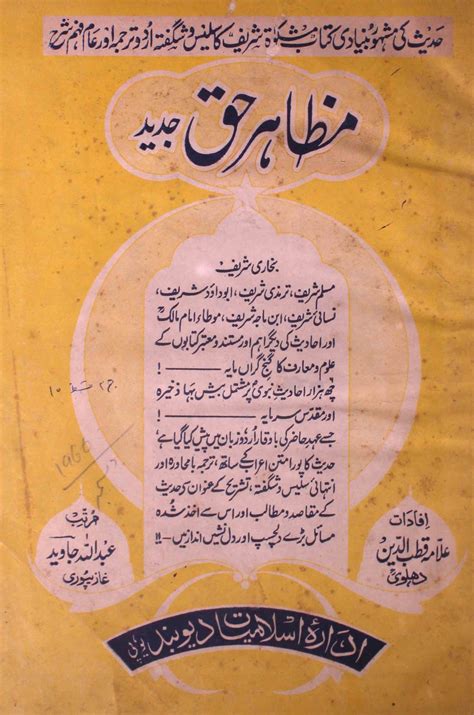 حدیث کی مشہور بنیادی کتاب مشکوٰۃ شریف کا سلیس و شگفتہ اردو ترجمہ اور عام فہم شرح
مظاہر حق جدید
بخاری شریف
مسلم شریف، ترمذی شریف، ابوداؤد شریف،
نسائی شریف، ابن ماجہ شریف، موطاء امام مالکؒ
اور احادیث کی دیگر اہم اور مستند و معتبر کتابوں کے
علوم و معارف کا گنج گراں مایہ ——— !
چھ ہزار احادیث نبویؐ پر مشتمل بیش بہا ذخیرہ
اور مقدس سرمایہ ——— !
جسے عہد حاضر کی باوقار اردو زبان میں پیش کیا گیا ہے،
حدیث کا پورا متن اعراب کے ساتھ، ترجمہ بامحاورہ اور
انتہائی سلیس و شگفتہ، تشریح کے عنوان کو حدیث
کے مقاصد و مطالب اور اس سے اخذ شدہ
مسائل بڑے دلچسپ اور دل نشیں انداز میں — !!
افادات
علامہ قطب الدین
دھلویؒ
مرتب
عبداللہ جاوید
غازیپوری
ادارۂ اسلامیات دیوبند یوپی